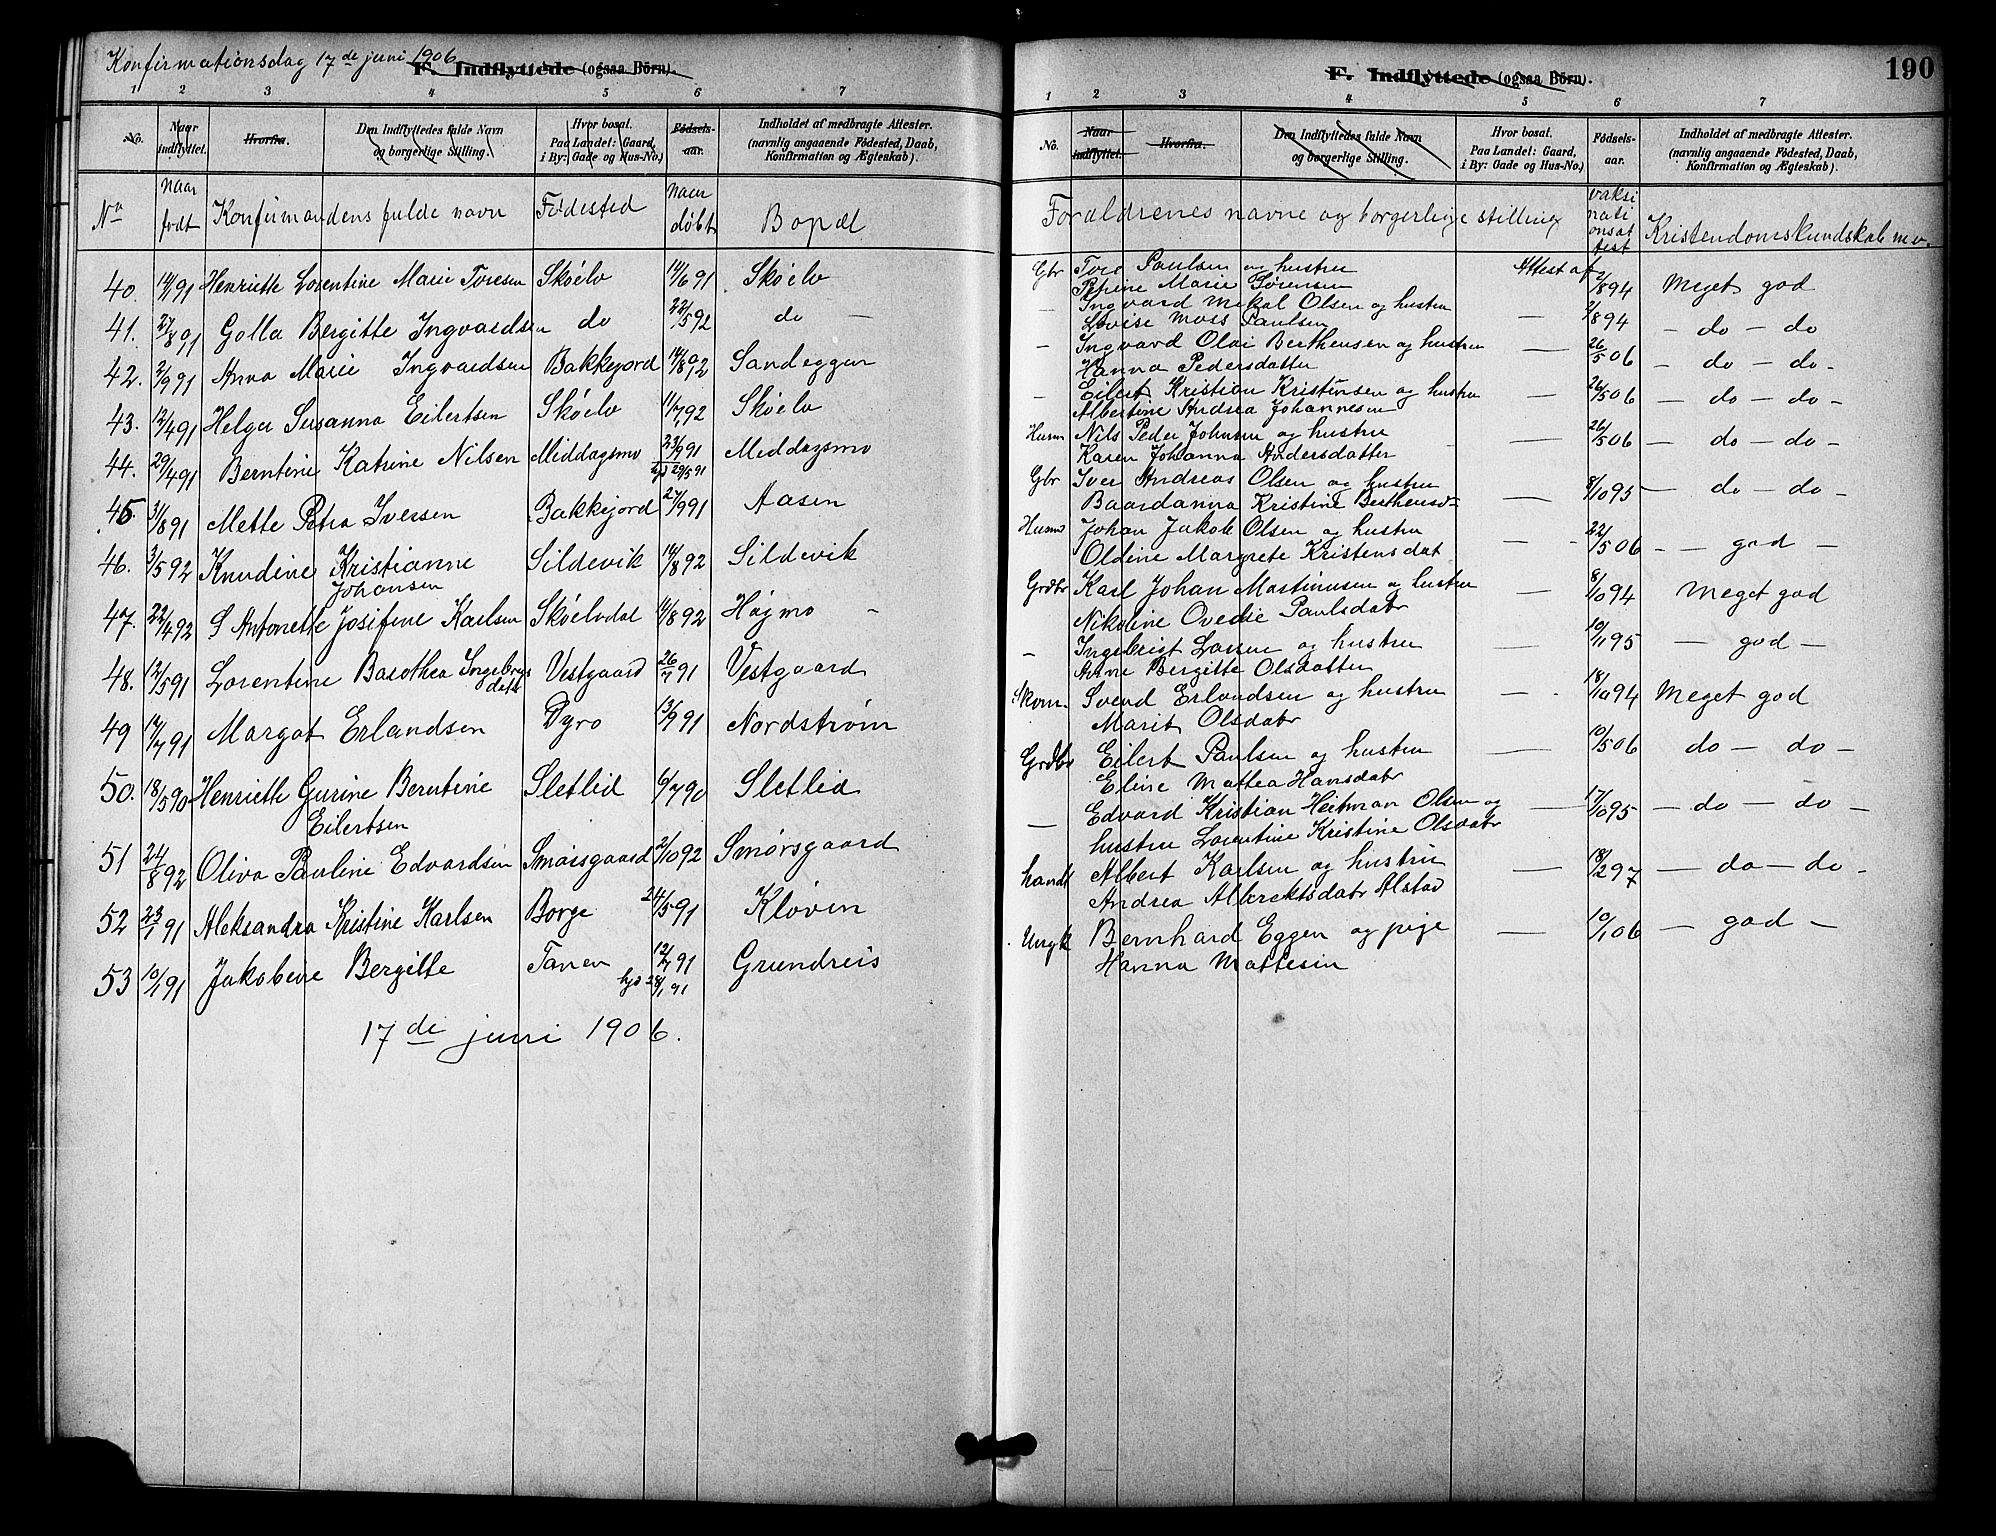 Konfirmationsdag 17de juni 1906
F. Indflyttede (ogsaa Börn).
1 2 3 4 5 6 7
No. Naar indflyttet. Hvorfra. Den Indflyttedes fulde Navn og borgerlige Stilling. Hvor bosat. Paa Landet: Gaard, i By: Gade og Hus-No.) Fødsels-aar. Indholdet af medbragte Attester. (navnlig angaaende Fødested, Daab, Konfirmation og Ægteskab).
No naar født Konfirmandens fulde navn Fødested naar døbt Bopæl
40. 14/1 91 Henriette Lorentine Marie Toresen Skøelv 14/6 91 Skøelv
41. 27/8 91 Golla Bergitte Ingvardsen do 22/5 92 do —
42. 2/9 91 Anna Marie Ingvardsen Bakkejord 14/8 92 Sandeggen
43. 12/4 91 Helga Susanna Eilertsen Skøelv 11/7 92 Skøelv
44. 29/4 91 Berntine Katrine Nilsen Middagsmo 23/9 91 Middagsmo
hjd 29/5 91
45. 31/8 91 Mette Petra Iversen Bakkejord 27/9 91 Aasen
46. 3/5 92 Knudine Kristianne Sildevik 14/8 92 Sildevik
Johansen
47. 22/4 92 S Antonette Josefine Karlsen Skøelvdal 14/8 92 Højmo
48. 12/5 91 Lorentine Basothea Ingebrigs Vestgaard 26/7 91 Vestgaard
datt
49 17/7 91 Margot Erlandsen Dyrø 13/9 91 Nordstrøm
50. 18/5 90 Henriette Gurine Berntine Sletlid 6/7 90 Sletlid
Eilertsen
51 24/8 92 Oliva Pauline Edvardsen Smørsgaard 2/10 92 Smørsgaard
52 23/1 91 Aleksandra Kristine Karlsen Borge 24/5 91 Kløven
53 10/1 91 Jakobine Bergitte Tanen 12/7 91 Grundreis
hjd 28/1 91
17de juni 1906.
F. Indflyttede (ogsaa Börn).
190
1 2 3 4 5 6 7
No. Naar indflyttet. Hvorfra. Den Indflyttedes fulde Navn og borgerlige Stilling. Hvor bosat. Paa Landet: Gaard, i By: Gade og Hus-No.) Fødsels-aar. Indholdet af medbragte Attester. (navnlig angaaende Fødested, Daab, Konfirmation og Ægteskab).
Forældrenes navne og borgerlige stilling vaksinationsattest Kristendomskundskab m.v.
Gbr Tore Paulsen og hustru Attest af 2/8 94 Meget god
Petrine Marie Sørensen
— Ingvard Mikal Olsen og hustru — 2/8 94 — do — do
Lovise Moss Paulsen
— Ingvard Olai Berthensen og hustru — 26/5 06 — do — do —
Hanna Pedersdatter
— Eilert Kristian Kristensen og hustru — 26/5 06 — do — do —
Albertine Andrea Johannesen
Husm Nils Peder Johnsen og hustru — 26/5 06 — do — do —
Karen Johanna Andersdatter
Gbr Iver Andreas Olsen og hustru — 8/10 95 — do — do —
Baardanna Kristine Berthensd—
Husm Johan Jakob Olsen og hustru — 22/5 06 — — god —
Oldine Margrete Kristensdat
Grdbr Karl Johan Martinusen og hustru — 8/10 94 Meget god
Nikoline Ovedie Paulsdatr
— Ingebrigt Larsen og hustru — 10/11 95 — god —
Anne Bergitte Olsdatter
Skom. Svend Erlandsen og hustru — 18/10 94 Meget god
Marit Olsdatr
Grdbr Eilert Paulsen og hustru — 10/5 06 do — do —
Eline Mattea Hansdatr
— Edvard Kristian Heitman Olsen og — 17/10 95 — do — do —
hustru Lorentine Kristine Olsdatr
handl Albert Karlsen og hustru — 18/2 97 — do — do —
Andrea Albrektsdatr Alstad
Ungk Bernhard Eggen og pige — 10/1 06 — god —
Hanna Mattesen